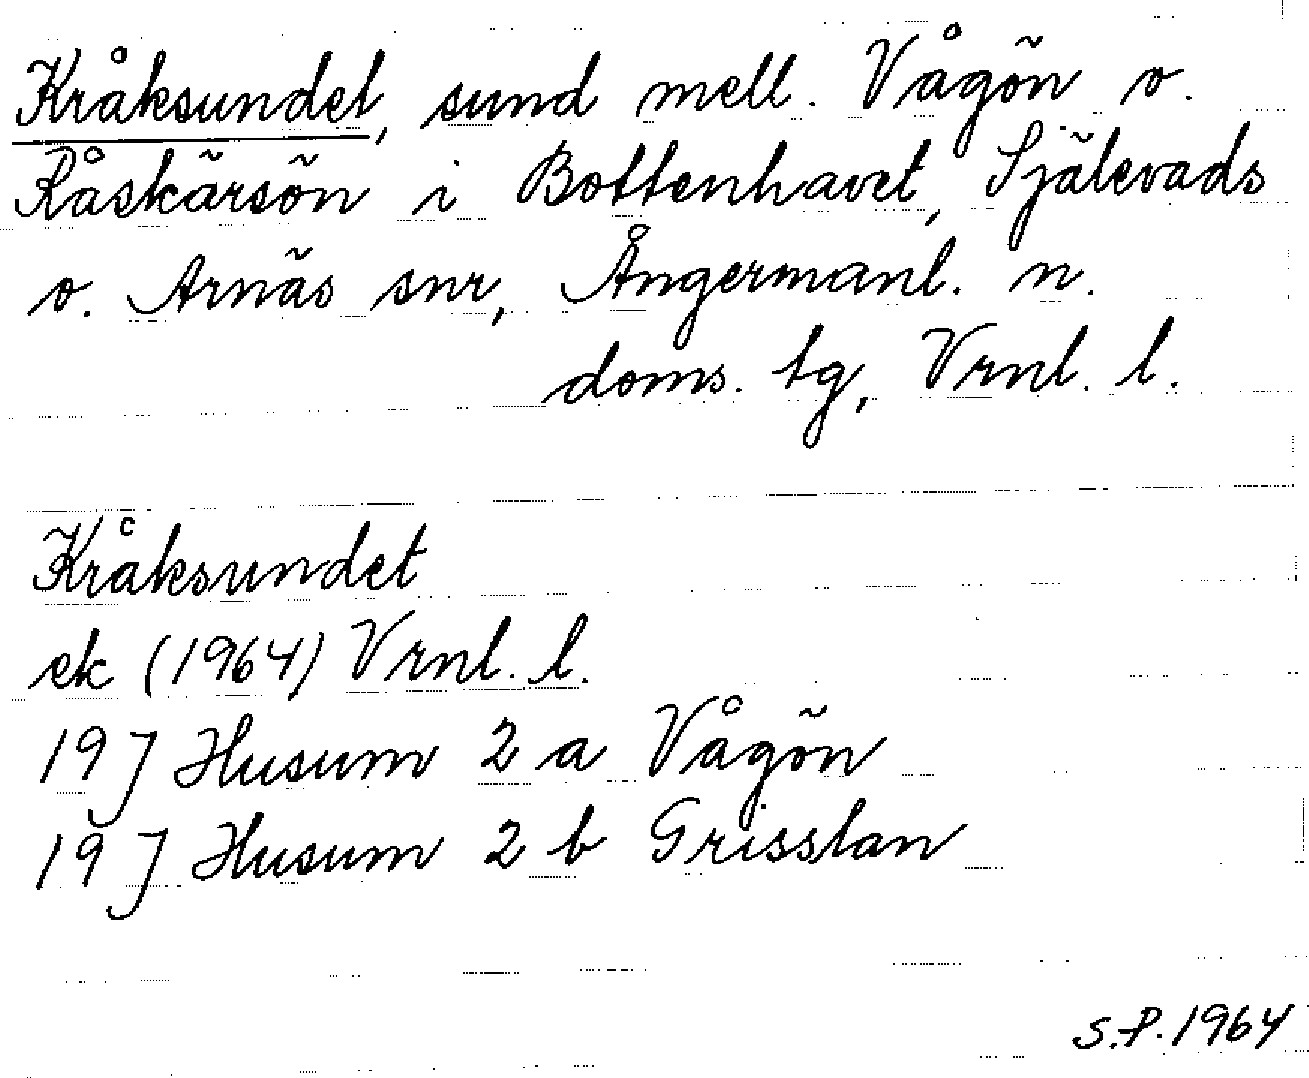 Kråksundet, sund mell. Vågön o.
Råskärsön i Bottenhavet, Själevads
o. Arnäs snr, Ångermanl. n.
doms. tg, Vrnl. l.
Kråksundet
ek (1964) Vrnl. l.
19 J Husum 2 a Vågön
19 J Husum 2 b Grisslan
S.P. 1964